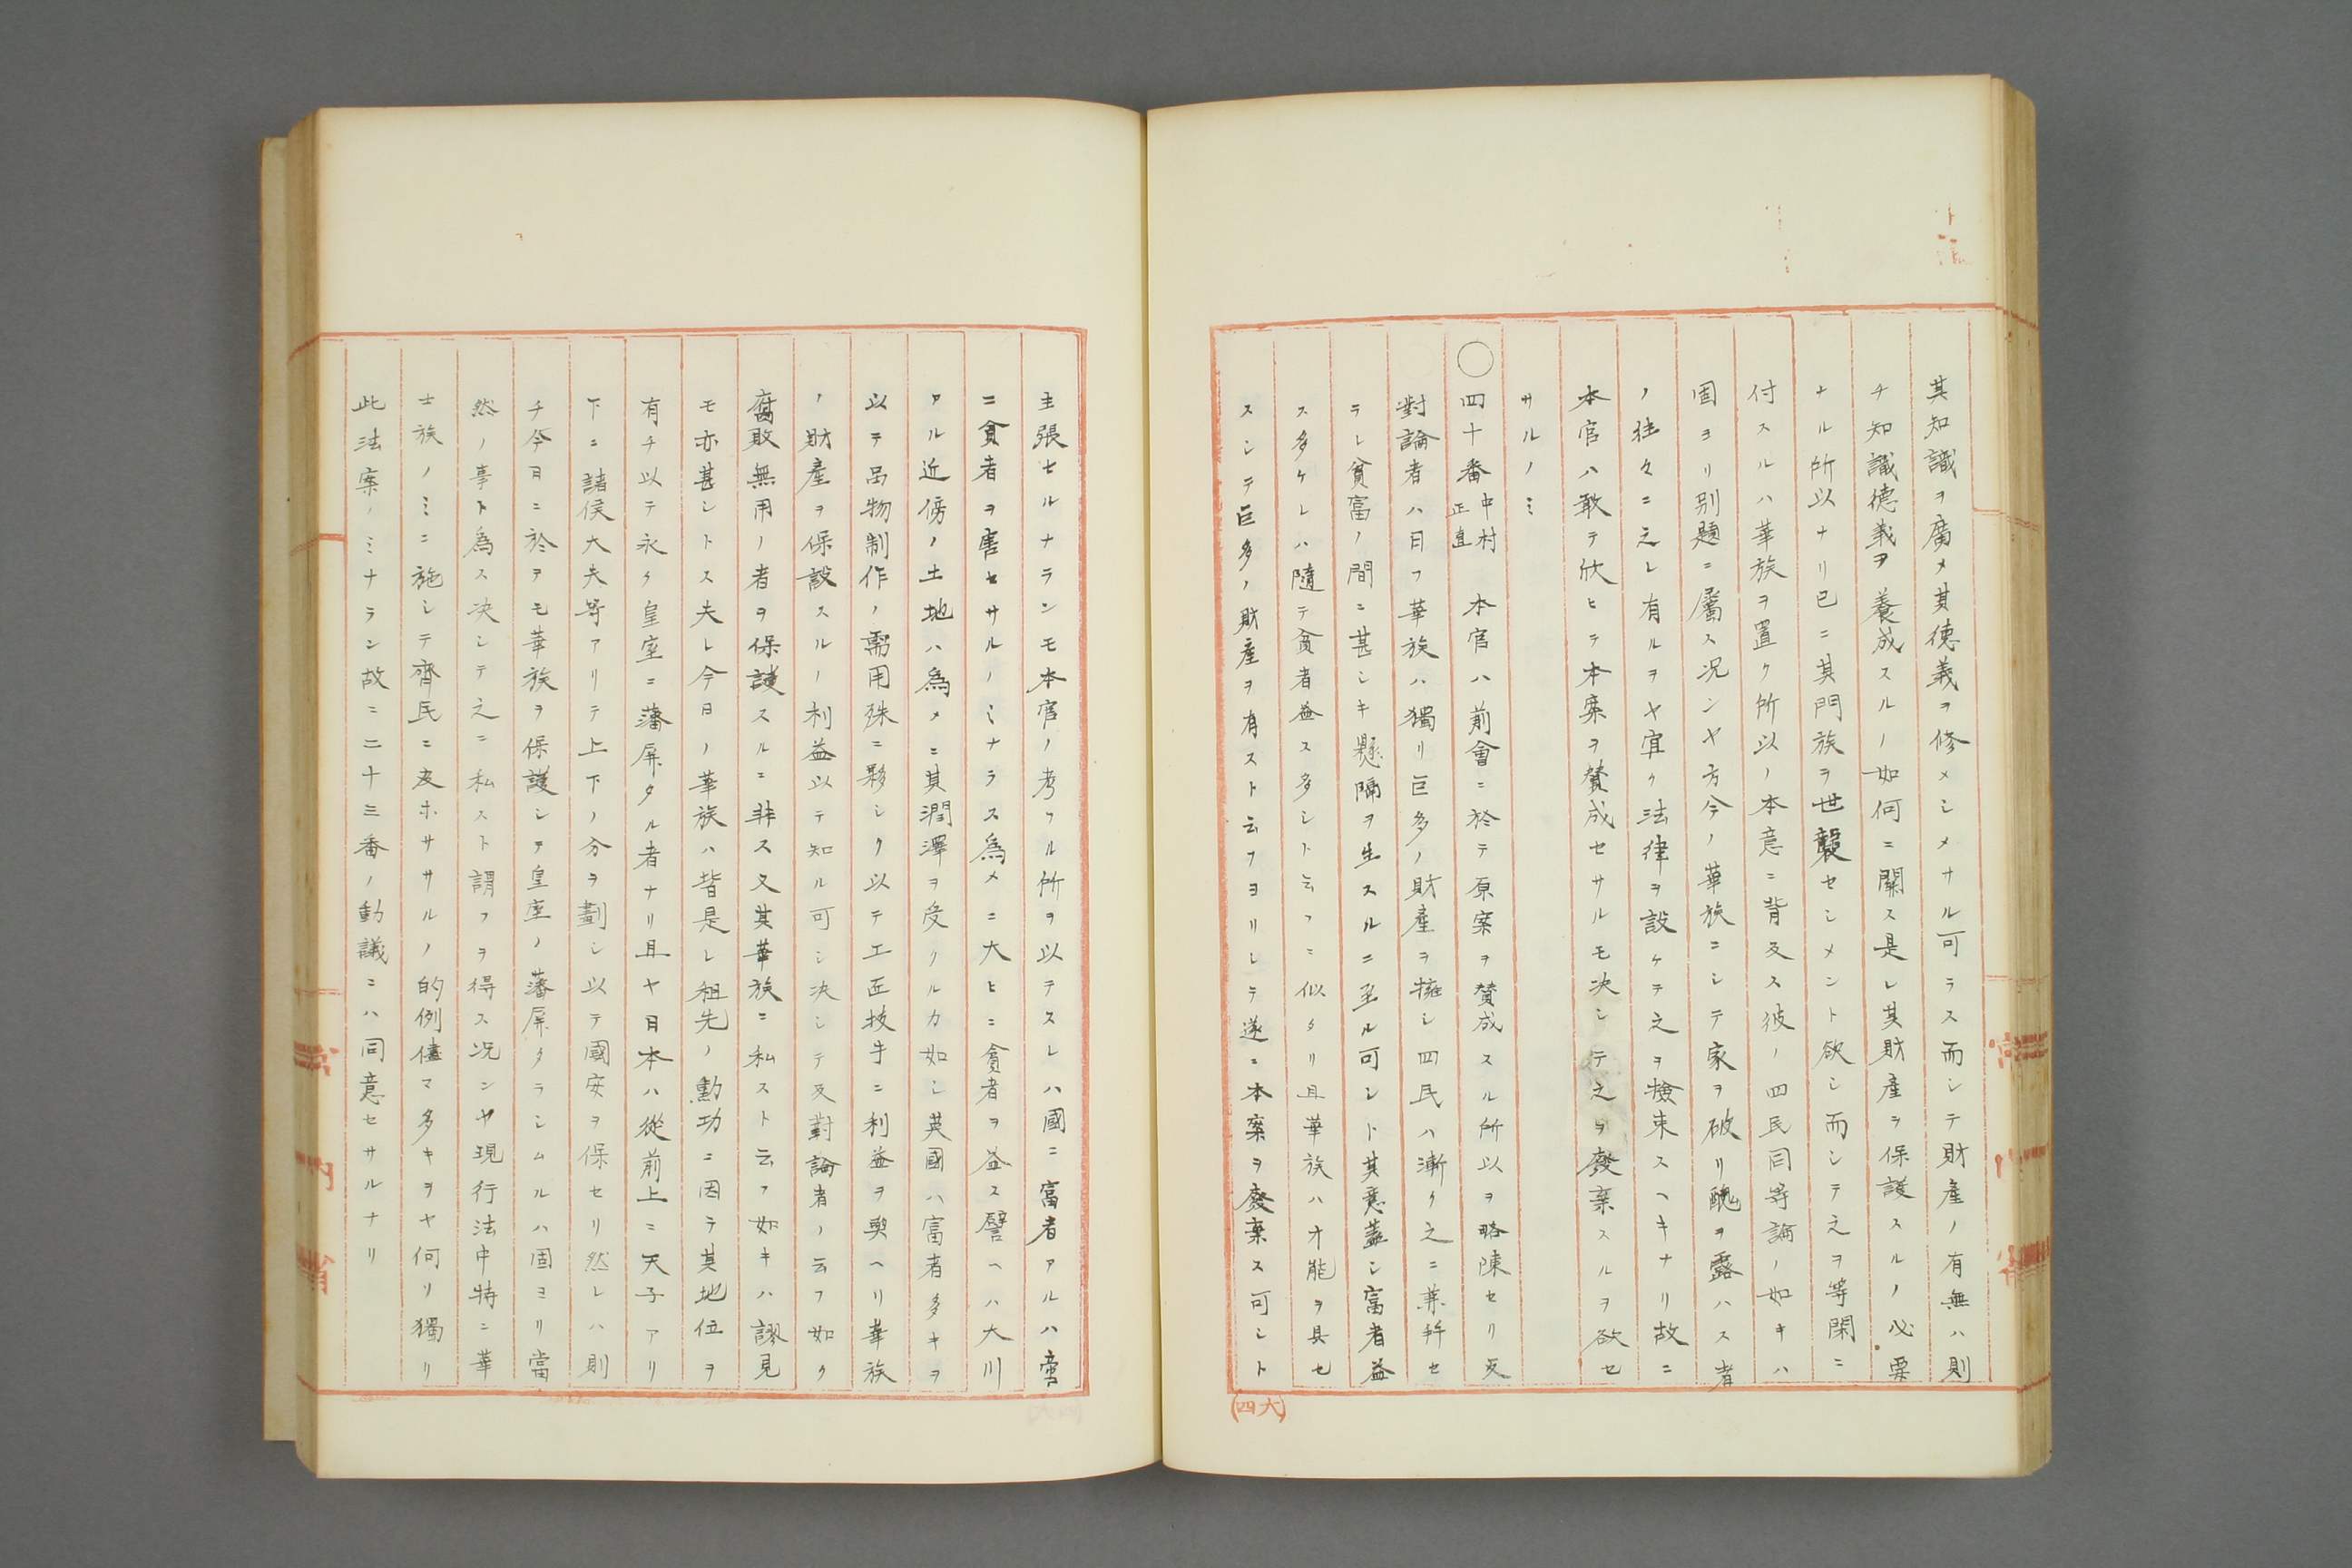 其知識ヲ廣メ其徳義ヲ修メシメナル可ラス而シテ財産ノ有無ハ則
チ知識徳義ヲ養成スルノ如何ニ關ス是レ其財産ヲ保護スルノ必要
ナル所以ナリ已ニ其門族ヲ世襲セシメント欲シ而シテ之ヲ等閑ニ
付スルハ華族ヲ置ク所以ノ本意ニ背反ス彼ノ四民同等論ノ如キハ
固ヨリ別題ニ屬ス况ンヤ方今ノ華族ニシテ家ヲ破リ醜ヲ露ハス者
ノ往々ニ之レ有ルヲヤ宜ク法律ヲ設ケテ之ヲ檢束スヘキナリ故ニ
本官ハ敢テ欣ヒテ本案ヲ賛成セサルモ决シテ之ヲ廢棄スルヲ欲セ
サルノミ
○四十番中村正直 本官ハ前會ニ於テ原案ヲ賛成スル所以ヲ略陳セリ反
對論者ハ曰フ華族ハ獨リ巨多ノ財産ヲ擁シ四民ハ漸ク之ニ兼幷セ
ラレ貧富ノ間ニ甚シキ懸隔ヲ生スルニ至ル可シト其意蓋シ富者益
ス多ケレハ隨テ貧者益ス多シト云フニ似タリ且華族ハ才能ヲ具セ
スシテ巨多ノ財産ヲ有スト云フヨリシテ遂ニ本案ヲ廢棄ス可シト
(四六)
主張セルナランモ本官ノ考フル所ヲ以テスレハ國ニ富者アルハ啻
ニ貧者ヲ害セサルノミナラス為メニ大ヒニ貧者ヲ益ス譬ヘハ大川
アル近傍ノ土地ハ為メニ其潤澤ヲ受クルカ如シ英國ハ富者多キヲ
以テ品物制作ノ需用殊ニ夥シク以テ工匠技手ニ利益ヲ與ヘリ華族
ノ財産ヲ保護スルノ利益以テ知ル可シ决シテ反對論者ノ云フ如ク
腐敗無用ノ者ヲ保護スルニ非ス又其華族ニ私スト云フ如キハ謬見
モ亦甚シトス夫レ今日ノ華族ハ皆是レ祖先ノ勳功ニ因テ其地位ヲ
有チ以テ永ク皇室ニ藩屏タル者ナリ且ヤ日本ハ從前上ニ天子アリ
下ニ諸侯大夫等アリテ上下ノ分ヲ劃シ以テ國安ヲ保セリ然レハ則
チ今日ニ於ヲモ華族ヲ保護シテ皇室ノ藩屏タラシムルハ固ヨリ當
然ノ事ト為ス决シテ之ニ私スト謂フヲ得ス况ンヤ現行法中特ニ華
士族ノミニ施シテ齊民ニ及ホサヽルノ的例儘マ多キヲヤ何リ獨リ
此法案ノミナラン故ニ二十三番ノ動議ニハ同意セサルナリ